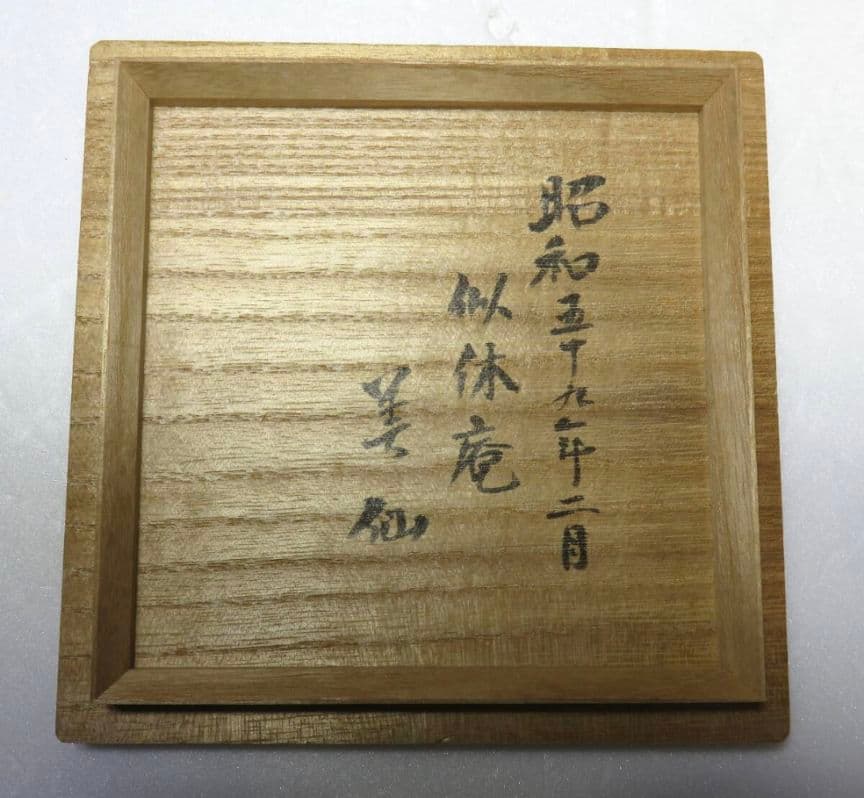 昭和五十九年二月
似休庵
美仙